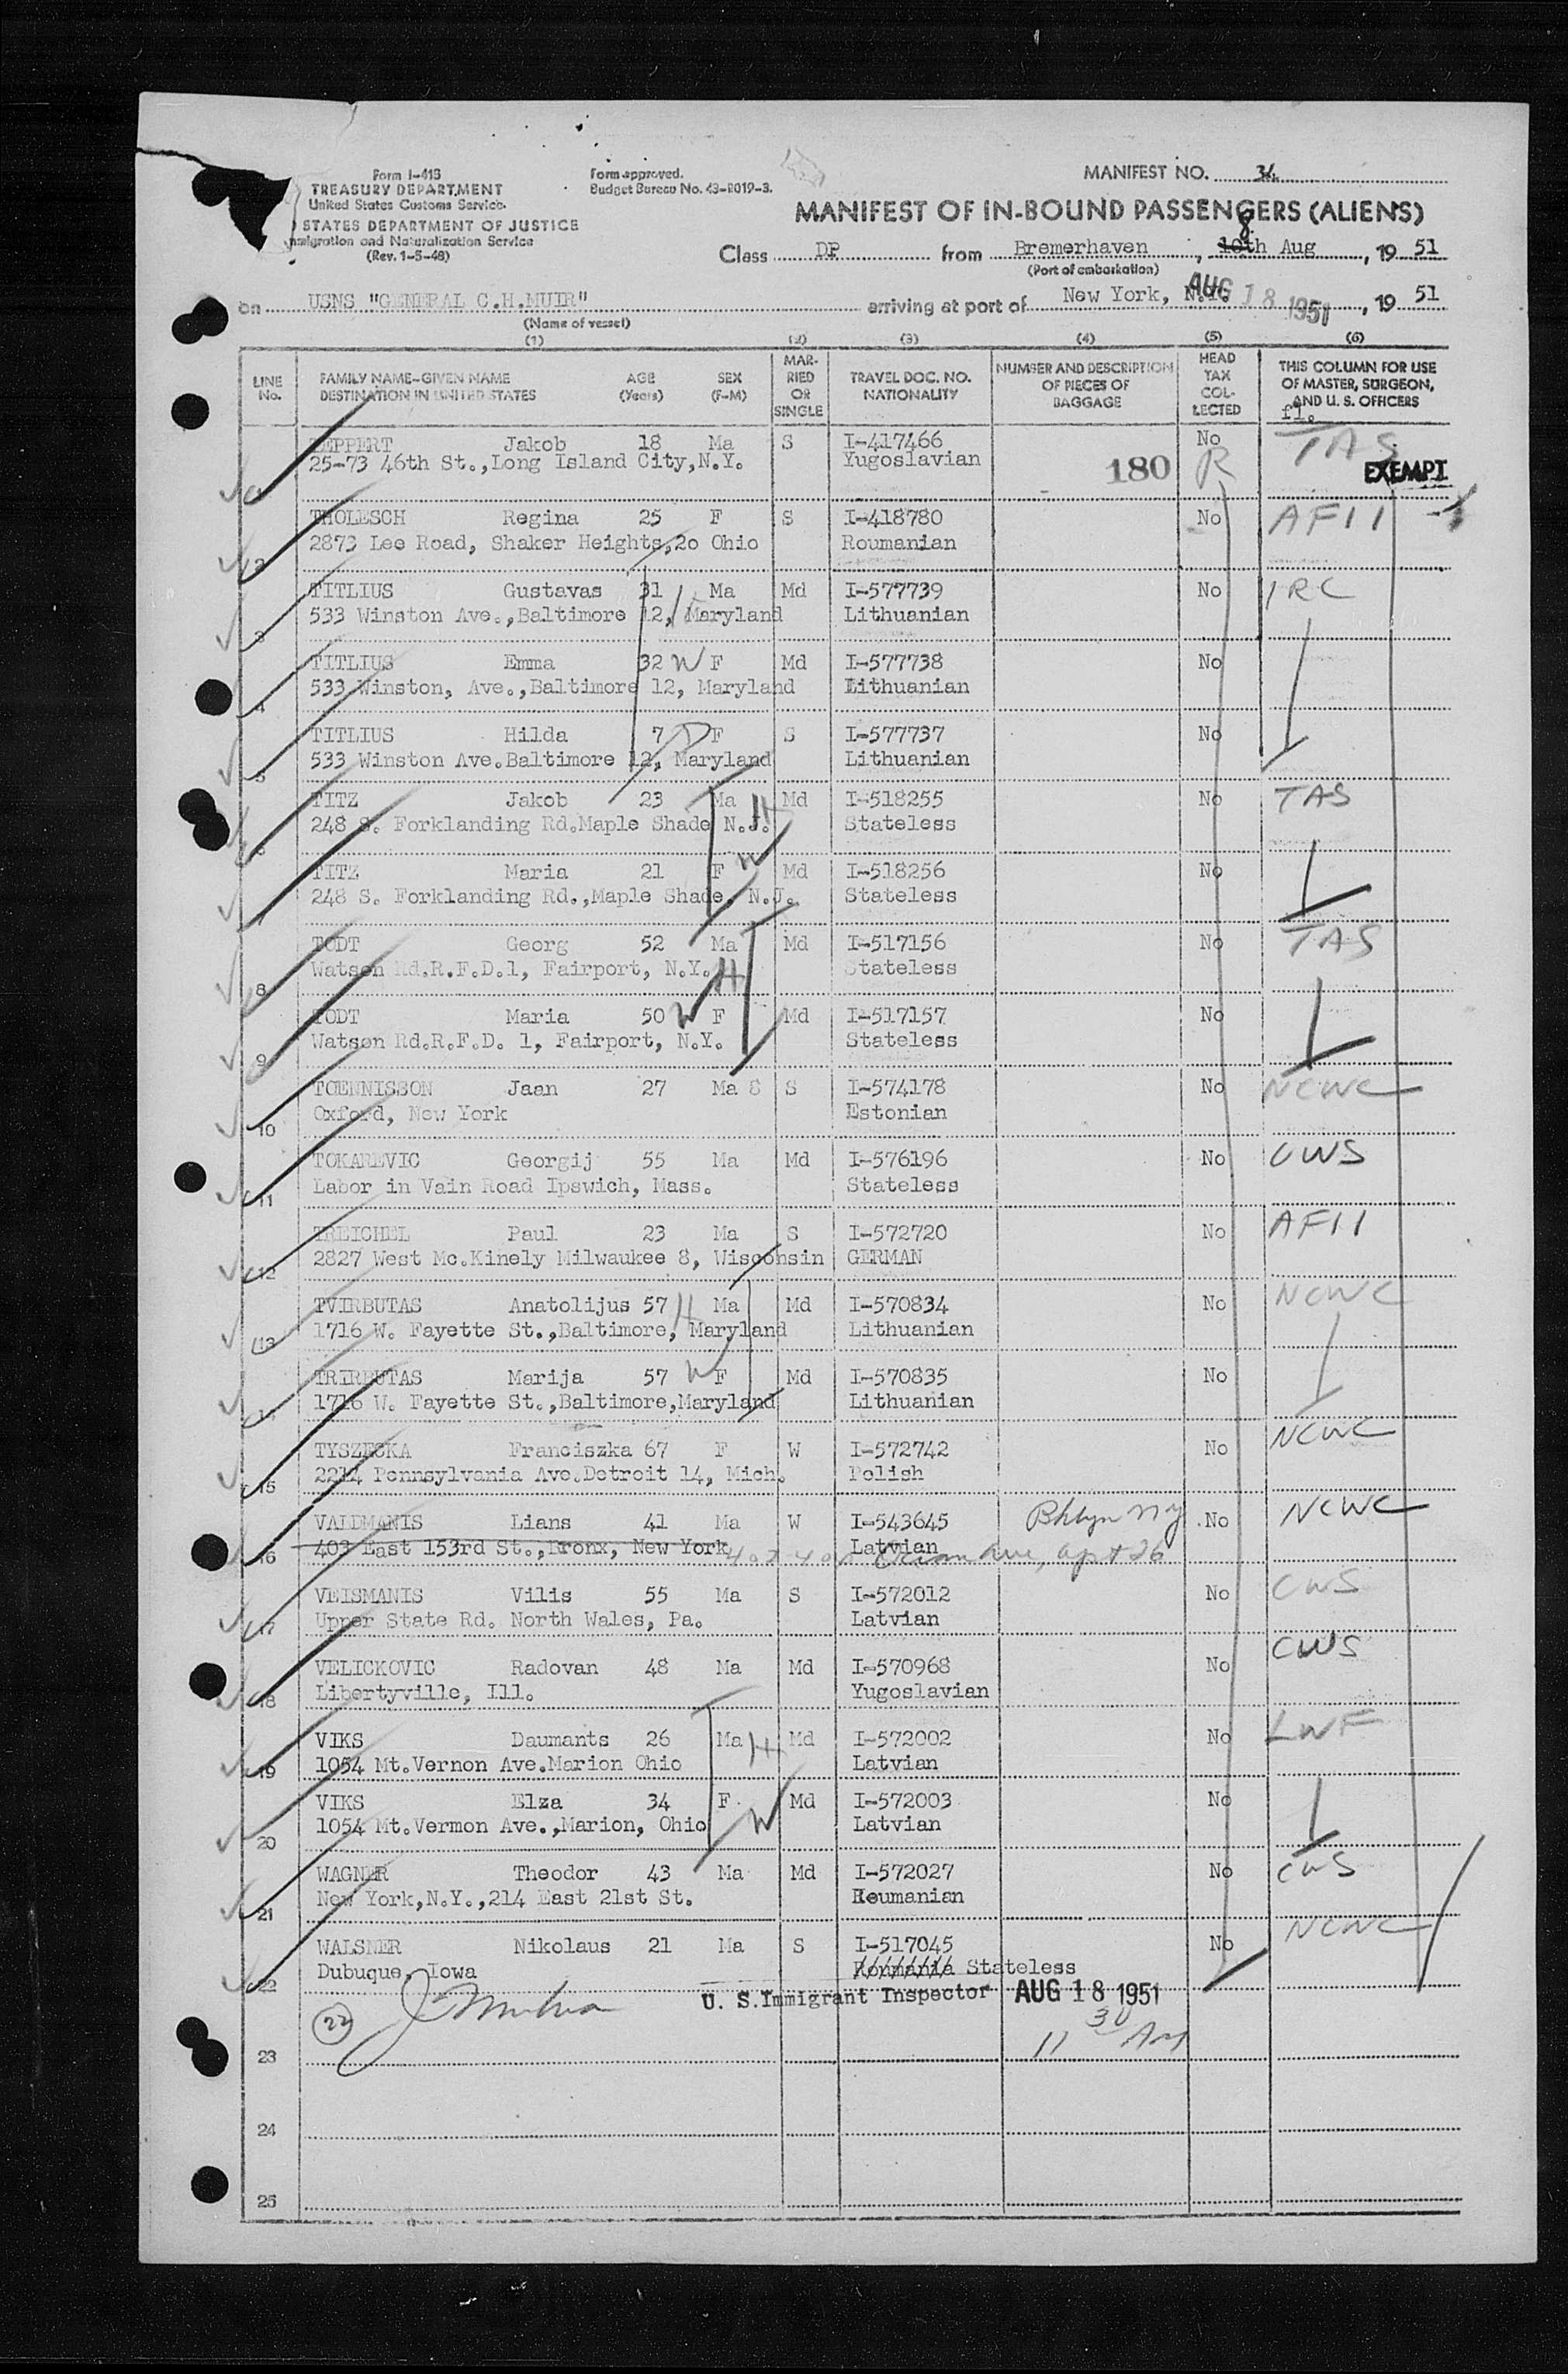 Form I-418
TREASURY DEPARTMENT
United States Customs Service
STATES DEPARTMENT OF JUSTICE
Immigration and Naturalization Service
(Rev. 1-5-48)
Form approved.
Budget Bureau No. 43-R019-3.
MANIFEST NO. 34
MANIFEST OF IN-BOUND PASSENGERS (ALIENS)
Class DP from Bremerhaven , 10th 8 Aug , 19 51
(Port of embarkation)
on USNS "GENERAL C.H.MUIR" arriving at port of New York, N.Y. AUG 18 1951 , 19 51
(Name of vessel)
(1) (2) (3) (4) (5) (6)
LINE No. FAMILY NAME-GIVEN NAME DESTINATION IN UNITED STATES AGE (Years) SEX (F-M) MARRIED OR SINGLE TRAVEL DOC. NO. NATIONALITY NUMBER AND DESCRIPTION OF PIECES OF BAGGAGE HEAD TAX COLLECTED THIS COLUMN FOR USE OF MASTER, SURGEON, AND U. S. OFFICERS
fl.
Jakob 18 Ma S I-417466 No TAS
25-73 46th St.,Long Island City,N.Y. Yugoslavian 180 R EXEMPT
2 THOLESCH Regina 25 F S I-418780 No AFII
2873 Lee Road, Shaker Heights,20 Ohio Roumanian
3 TITLIUS Gustavas 31 H Ma Md I-577739 No IRC
533 Winston Ave.,Baltimore 12, Maryland Lithuanian
4 TITLIUS Emma 32 W F Md I-577738 No
533 Winston, Ave.,Baltimore 12, Maryland Lithuanian
5 TITLIUS Hilda 7 D F S I-577737 No
533 Winston Ave.Baltimore 12, Maryland Lithuanian
6 TITZ Jakob 23 Ma H Md I-518255 No TAS
248 S. Forklanding Rd.Maple Shade N.J. Stateless
7 TITZ Maria 21 F W Md I-518256 No
248 S. Forklanding Rd.,Maple Shade, N.J. Stateless
8 TODT Georg 52 Ma Md I-517156 No TAS
Watson Rd.R.F.D.1, Fairport, N.Y. H Stateless
9 TODT Maria 50 W F Md I-517157 No
Watson Rd.R.F.D. 1, Fairport, N.Y. Stateless
10 TOENNISSON Jaan 27 Ma 8 S I-574178 No NCWC
Oxford, New York Estonian
11 TOKAREVIC Georgij 55 Ma Md I-576196 No CWS
Labor in Vain Road Ipswich, Mass. Stateless
12 TREICHEL Paul 23 Ma S I-572720 No AFII
2827 West Mc.Kinely Milwaukee 8, Wisconsin GERMAN
13 TVIRBUTAS Anatolijus 57 H Ma Md I-570834 No NCWC
1716 W. Fayette St.,Baltimore, Maryland Lithuanian
14 TRIRBUTAS Marija 57 W F Md I-570835 No
1716 W. Fayette St.,Baltimore,Maryland Lithuanian
15 TYSZECKA Franciszka 67 F W I-572742 No NCWC
2214 Pennsylvania Ave.Detroit 14, Mich. Polish
16 VALDMANIS Lians 41 Ma W I-543645 Bklyn NY .No NCWC
403 East 153rd St.,Bronx, New York Latvian Ocean Ave, apt 26
17 VEISMANIS Vilis 55 Ma S I-572012 No CWS
Upper State Rd. North Wales, Pa. Latvian
18 VELICKOVIC Radovan 48 Ma Md I-570968 No CWS
Libertyville, Ill. Yugoslavian
19 VIKS Daumants 26 Ma H Md I-572002 No LWF
1054 Mt.Vernon Ave.Marion Ohio Latvian
20 VIKS Elza 34 F. W Md I-572003 No
1054 Mt.Vermon Ave.,Marion, Ohio Latvian
21 WAGNER Theodor 43 Ma Md I-572027 No CWS
New York,N.Y.,214 East 21st St. Roumanian
22 WALSNER Nikolaus 21 Ma S I-517045 No NCWC
Dubuque, Iowa Rormania Stateless
U. S. Immigrant Inspector AUG 18 1951
22
11 30 AM
23
24
25